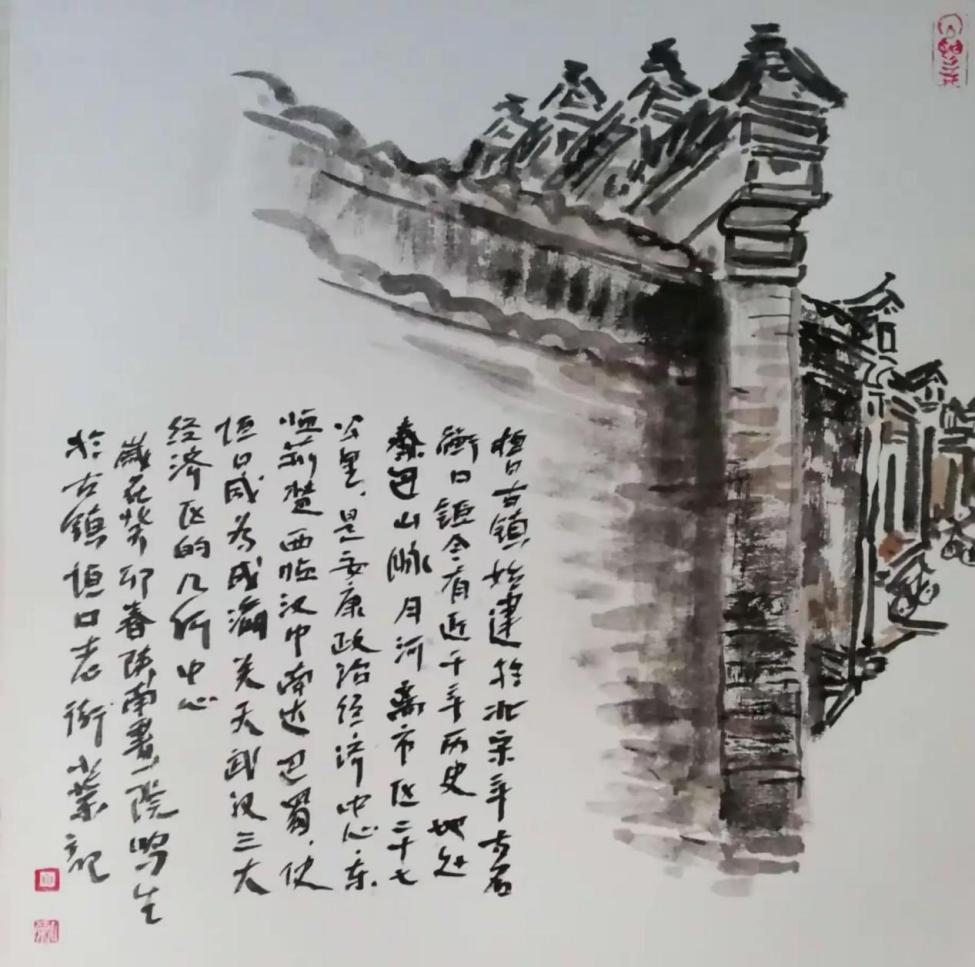 恒口古镇始建於北宋年古名
衡口镇今有近千年历史地处
秦巴山脉月河离市区二十七
公里、是安康政治经济中心、东
临荆楚西临汉中南达巴蜀、使
恒口成为成渝关天武汉三大
经济区的几何中心
岁在癸卯春陕南书院写生
於古镇恒口老街小蒙记